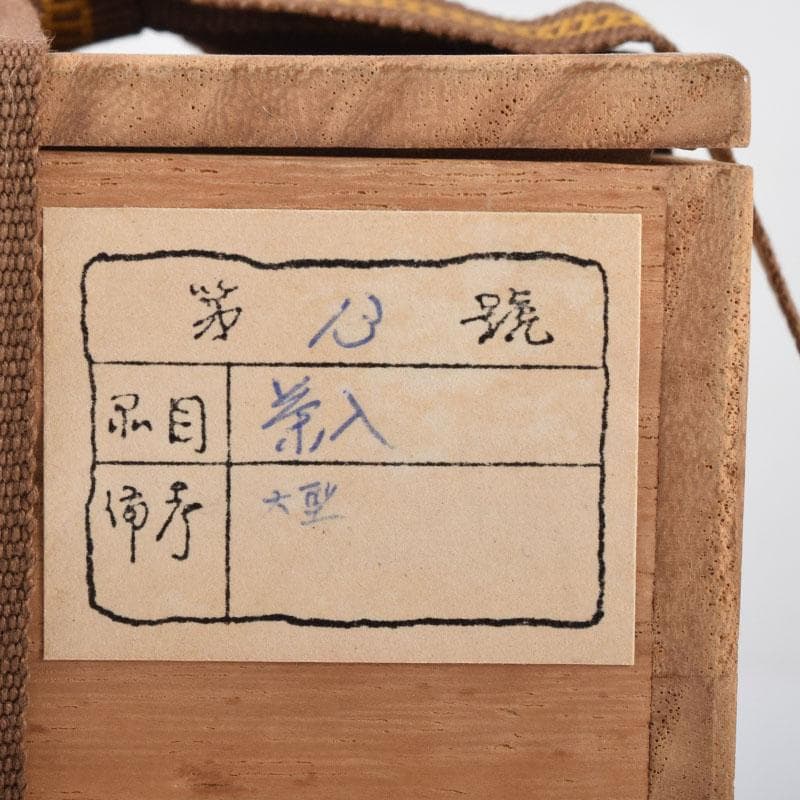 第 13 號
品目 茶入
備考 大型